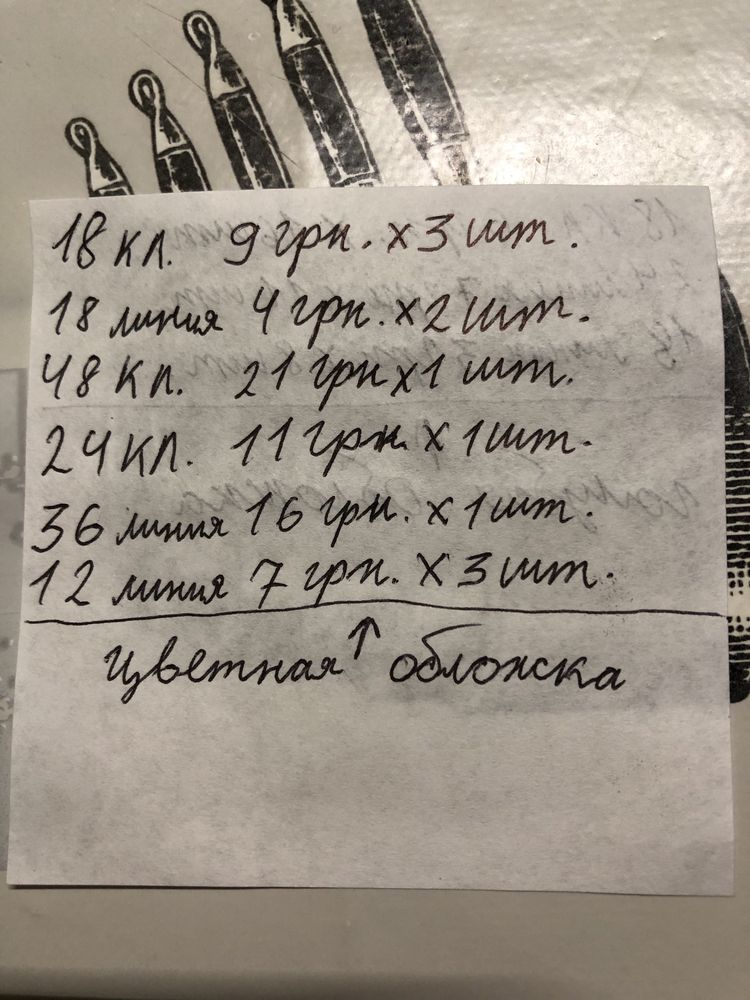 18 кл. 9 грн. х 3 шт.
18 линия 4 грн. х 2 шт.
48 кл. 21 грн х 1 шт.
24 кл. 11 грн. х 1 шт.
36 линия 16 грн. х 1 шт.
12 линия 7 грн. х 3 шт.
цветная ↑ обложка